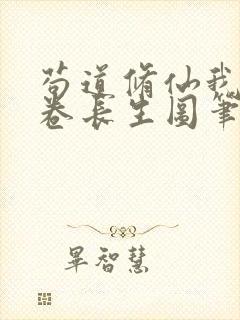 苟道脩仙我
卷長生圖筆
畢智慧